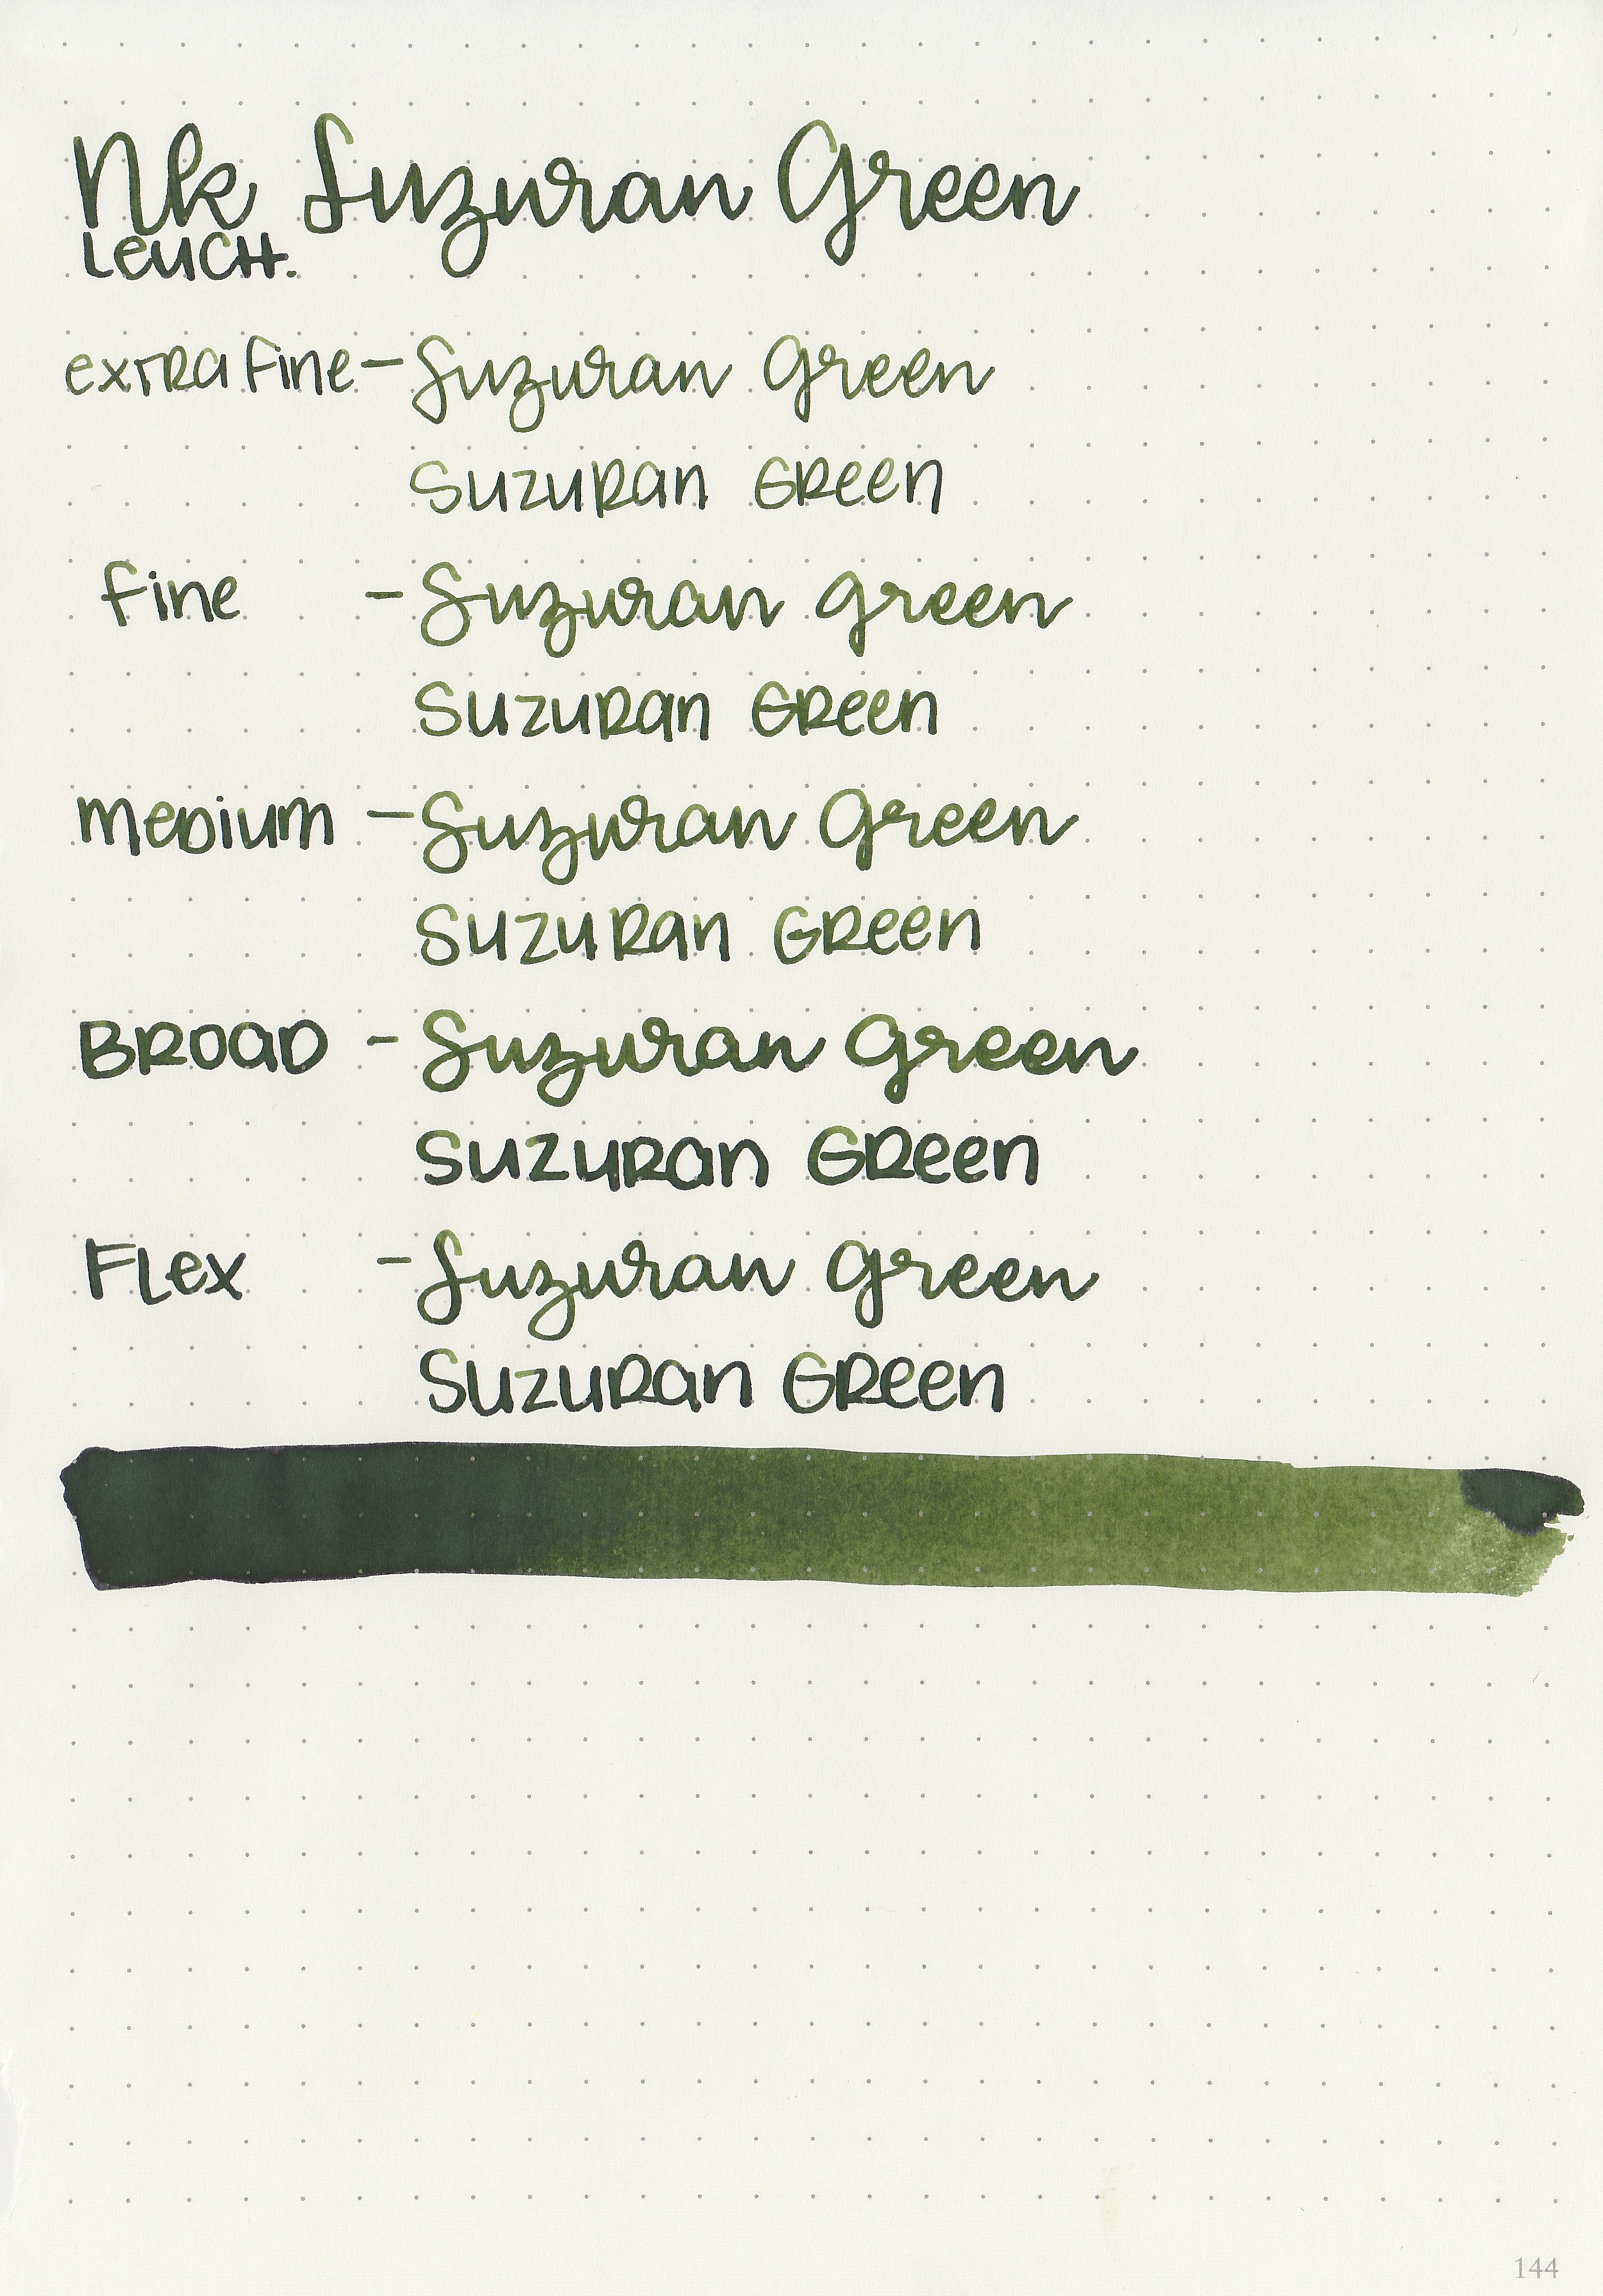 Nk Suzuran Green
Leuch.
extra fine - Suzuran Green
Suzuran Green
Fine - Suzuran Green
Suzuran Green
Medium - Suzuran Green
Suzuran Green
Broad - Suzuran Green
Suzuran Green
Flex - Suzuran Green
Suzuran Green
144